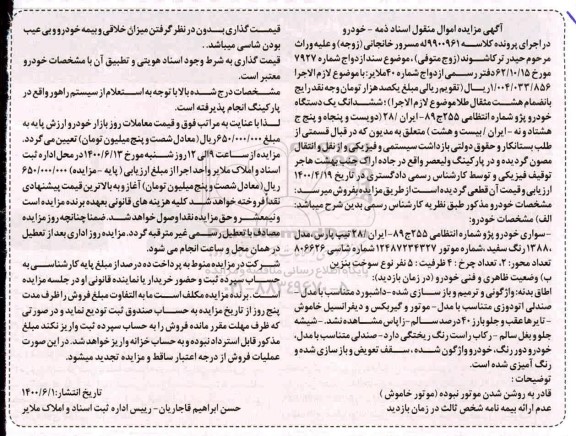 آگهی مزایده اموال منقول اسناد ذمه - خودرو
در اجرای پرونده کلاسه ۹۹۰۰۹۶۱ له مسرور خانجانی (زوجه) و علیه وراث
مرحوم حیدر ترکاشوند (زوج متوفی)، موضوع سند ازدواج شماره ۷۹۲۷
مورخ ۶۲/۱۰/۱۵ دفتر رسمی ازدواج شماره ۴۰ ملایر: با موضوع لازم الاجرا
۱/۰۰۴/۰۳۳/۸۵۶ ریال (تقویم ریالی مبلغ یکصد هزار تومان وجه نقد رایج
بانضمام هشت مثقال طلا موضوع لازم الاجرا)؛ ششدانگ یک دستگاه
خودرو پژو شماره انتظامی ۲۵۵ج۸۹- ایران /۲۸ (دویست و پنجاه و پنج ج
هشتاد و نه - ایران / بیست و هشت) متعلق به مدیون که در قبال قسمتی از
طلب بستانکار و حقوق دولتی بازداشت سیستمی و فیزیکی و از نقل و انتقال
مصون گردیده و در پارکینگ ولیعصر واقع در جاده اراک جنب بهشت هاجر
توقیف فیزیکی و توسط کارشناس رسمی دادگستری در تاریخ ۱۴۰۰/۴/۱۹
ارزیابی و قیمت آن قطعی گردیده است از طریق مزایده بفروش میرسد:
مشخصات خودرو مذکور طبق نظریه کارشناس رسمی بدین شرح میباشد:
الف) مشخصات خودرو:
-سواری خودرو پژو شماره انتظامی ۲۵۵ج۸۹- ایران /۲۸ تیپ پارس مدل
۱۳۸۸، رنگ سفید، شماره موتور ۱۲۴۸۷۲۳۴۳۲۷ شماره شاسی ۸۰۶۶۲۶
تعداد محور: ۲، تعداد چرخ: ۴ ظرفیت: ۵ نفر نوع سوخت بنزین
ب) وضعیت ظاهری و فنی خودرو (در زمان بازدید):
اطاق بدنه: واژگونی و ترمیم و باز سازی شده -داشبورد متناسب با مدل-
صندلی اتودوزی متناسب با مدل - موتور و گیربکس و دیفرانسیل خاموش
- تایرها عقب و جلو بارز ۴۰ درصد سالم - زاپاس مشاهده نشد. - شیشه
جلو و بغل سالم - رکاب راست رنگ ریختگی دارد- صندلی متناسب با مدل،
خودرو دور رنگ، خودرو واژگون شده، سقف تعویض و باز سازی شده و
رنگ آمیزی شده است.
توضیحات:
قادر به روشن شدن موتور نبوده (موتور خاموش)
عدم ارائه بیمه نامه شخص ثالث در زمان بازدید
قیمت گذاری بدون در نظر گرفتن میزان خلافی و بیمه خودرو و بی عیب
بودن شاسی میباشد.
قیمت گذاری به شرط وجود اسناد هویتی و تطبیق آن با مشخصات خودرو
معتبر است.
مشخصات درج شده بالا با توجه به استعلام از سیستم راهور واقع در
پارکینگ انجام پذیرفته است.
لذا با عنایت به مراتب فوق و قیمت معاملات روز بازار خودرو ارزش پایه به
مبلغ ۶۵۰/۰۰۰/۰۰۰ ریال (معادل شصت و پنج میلیون تومان) تعیین می گردد.
مزایده از ساعت ۹ الی ۱۲ روز شنبه مورخ ۱۴۰۰/۶/۱۳ در محل اداره ثبت
اسناد و املاک ملایر واحد اجرا از مبلغ ارزیابی (پایه - مزایده) ۶۵۰/۰۰۰/۰۰۰
ریال (معادل شصت و پنج میلیون تومان) آغاز و به بالاترین قیمت پیشنهادی
نقدا فروخته خواهد شد کلیه هزینه های قانونی بعهده برنده مزایده است
و نیمعشر و حق مزایده نقدا وصول خواهد شد. ضمنا چنانچه روز مزایده
مصادف با تعطیل رسمی غیر مترقبه گردد. مزایده روز اداری بعد از تعطیل
در همان محل و ساعت انجام می شود.
شرکت در مزایده منوط به پرداخت ده درصد از مبلغ پایه کارشناسی به
حساب سپرده ثبت و حضور خریدار یا نماینده قانونی او در جلسه مزایده
است. برنده مزایده مکلف است ما به التفاوت مبلغ فروش را ظرف مدت
پنج روز از تاریخ مزایده به حساب صندوق ثبت تودیع نماید و در صورتی
که ظرف مهلت مقرر مانده فروش را به حساب سپرده ثبت واریز نکند مبلغ
مذکور قابل استرداد نبوده و به حساب خزانه واریز خواهد شد. در این صورت
عملیات فروش از درجه اعتبار ساقط و مزایده تجدید میشود.
تاریخ انتشار: ۱۴۰۰/۶/۱
حسن ابراهیم قاجاریان - رییس اداره ثبت اسناد و املاک ملایر